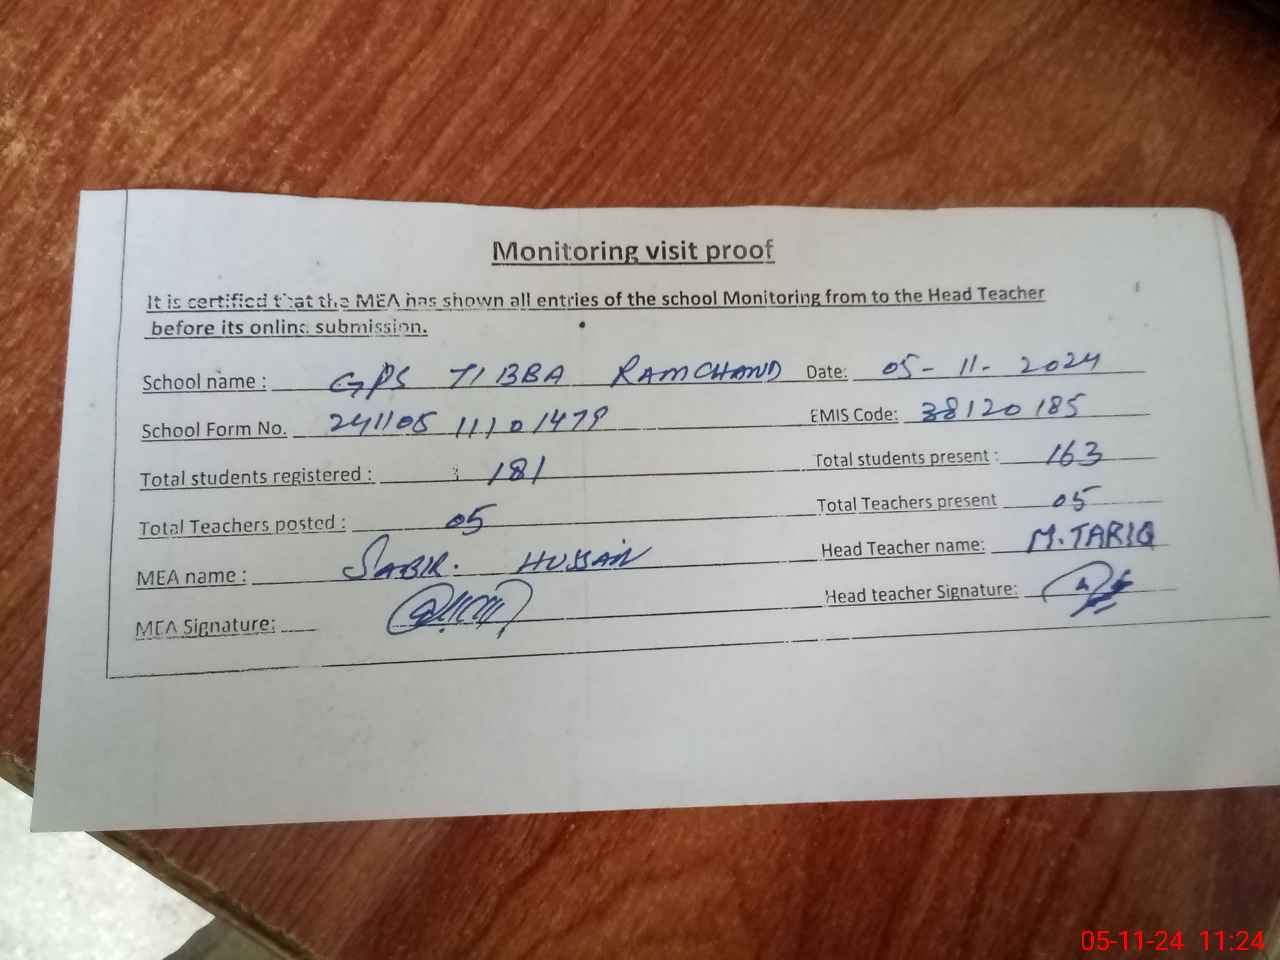 Monitoring visit proof
It is certified that the MEA has shown all entries of the school Monitoring from to the Head Teacher
before its online submission.
School name : GPS TIBBA RAMCHAND Date: 05-11-2024
School Form No. 241105 11101479 EMIS Code: 38120185
Total students registered : 181 Total students present : 163
Total Teachers posted : 05 Total Teachers present 05
MEA name : SABIR. HUSSAIN Head Teacher name: M.TARIQ
MEA Signature: Head teacher Signature:
05-11-24 11:24